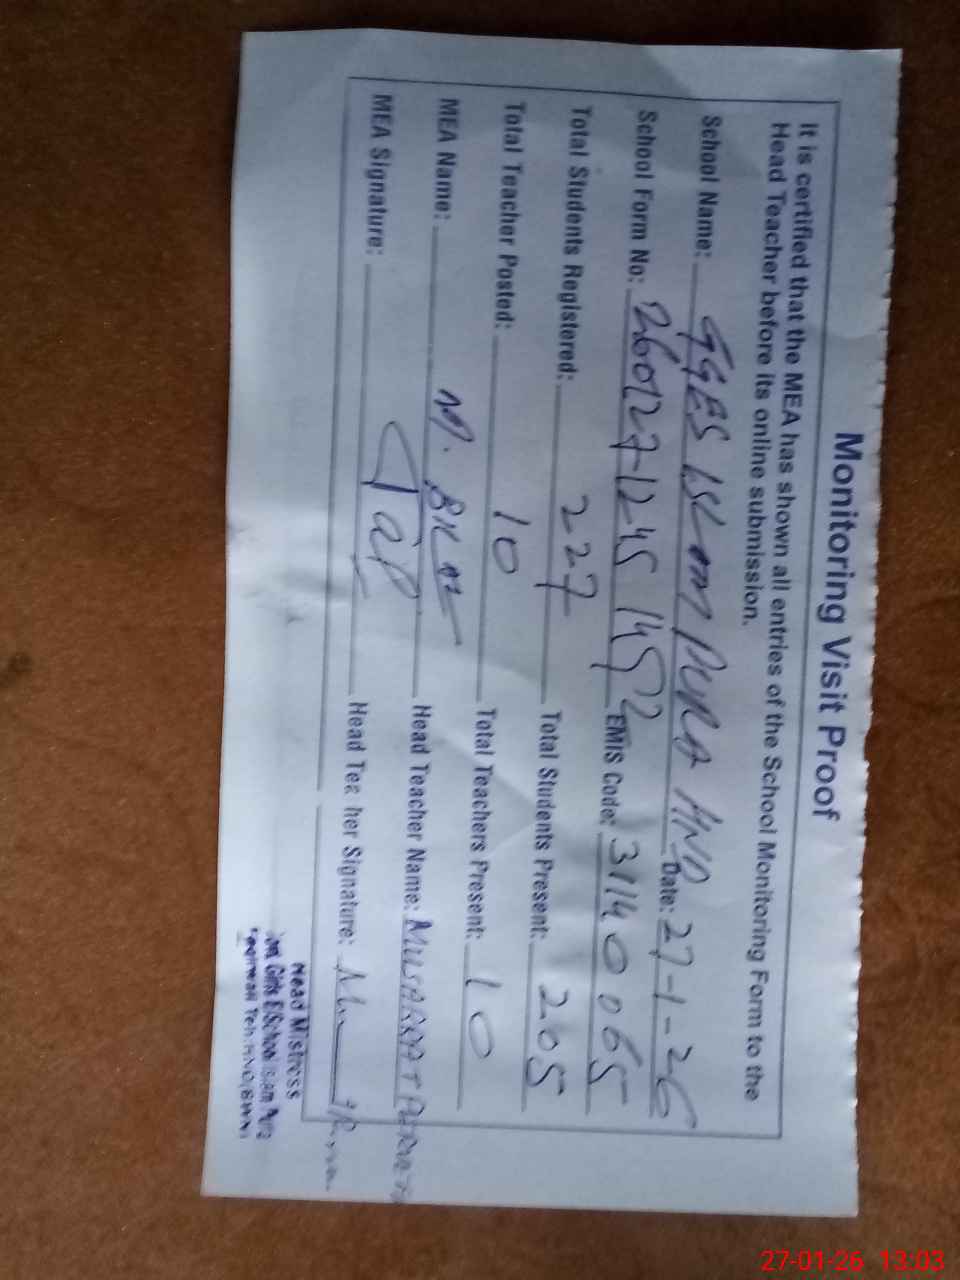 Monitoring Visit Proof
It is certified that the MEA has shown all entries of the School Monitoring Form to the
Head Teacher before its online submission.
School Name: GGES ISLAM PURA HND Date: 27-1-26
School Form No: 260127-1245 1452 EMIS Code: 31140065
Total Students Registered: 227 Total Students Present: 205
Total Teacher Posted: 10 Total Teachers Present: 10
MEA Name: M. Head Teacher Name: MUSARRAT
MEA Signature: Head Teacher Signature:
Head Mistress
Girls E/School Islam Pura
Teh: HND, BWN
27-01-26 13:03